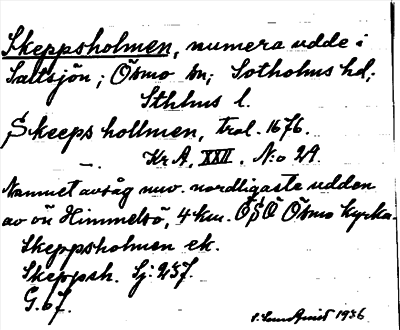 Skeppsholmen, numera udde i
Saltsjön; Ösmo sn; Sotholms hd;
Sthlms l.
Skeeps hollmen, trol. 1676.
Kr A. XXII. N:o 29.
Namnet avsåg nuv. nordligaste udden
av ön Himmelsö, 4 km. ÖSÖ Ösmo kyrka.
Skeppsholmen ek.
Skeppsh. Sj: 237.
G. 67.
1936